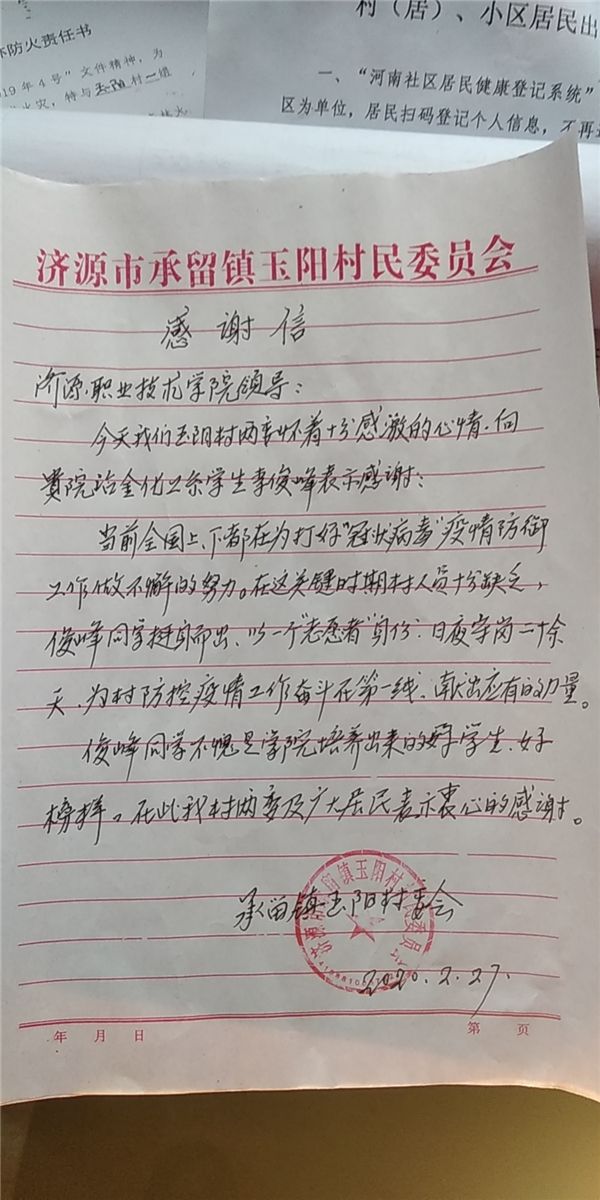 林防火责任书
19年4号”文件精神，为
火灾，特与玉阳村一组
村（居）、小区居民出
一、“河南社区居民健康登记系统”
区为单位，居民扫码登记个人信息，不再
济源市承留镇玉阳村民委员会
感谢信
济源职业技术学院领导：
今天我们玉阳村两委怀着十分感激的心情，向
貴院冶金化工系学生李俊峰表示感谢：
当前全国上、下都在为打好“冠状病毒”疫情防御
工作做不懈的努力。在这关键时期村人员十分缺乏，
俊峰同学挺身而出、以一个“志愿者”身份、日夜守岗二十余
天、为村防控疫情工作奋斗在第一线、献出应有的力量。
俊峰同学不愧是学院培养出来的好学生、好
榜样。在此我村两委及广大居民表示衷心的感谢。
承留镇玉阳村委会
2020.2.27.
年 月 日
第 页